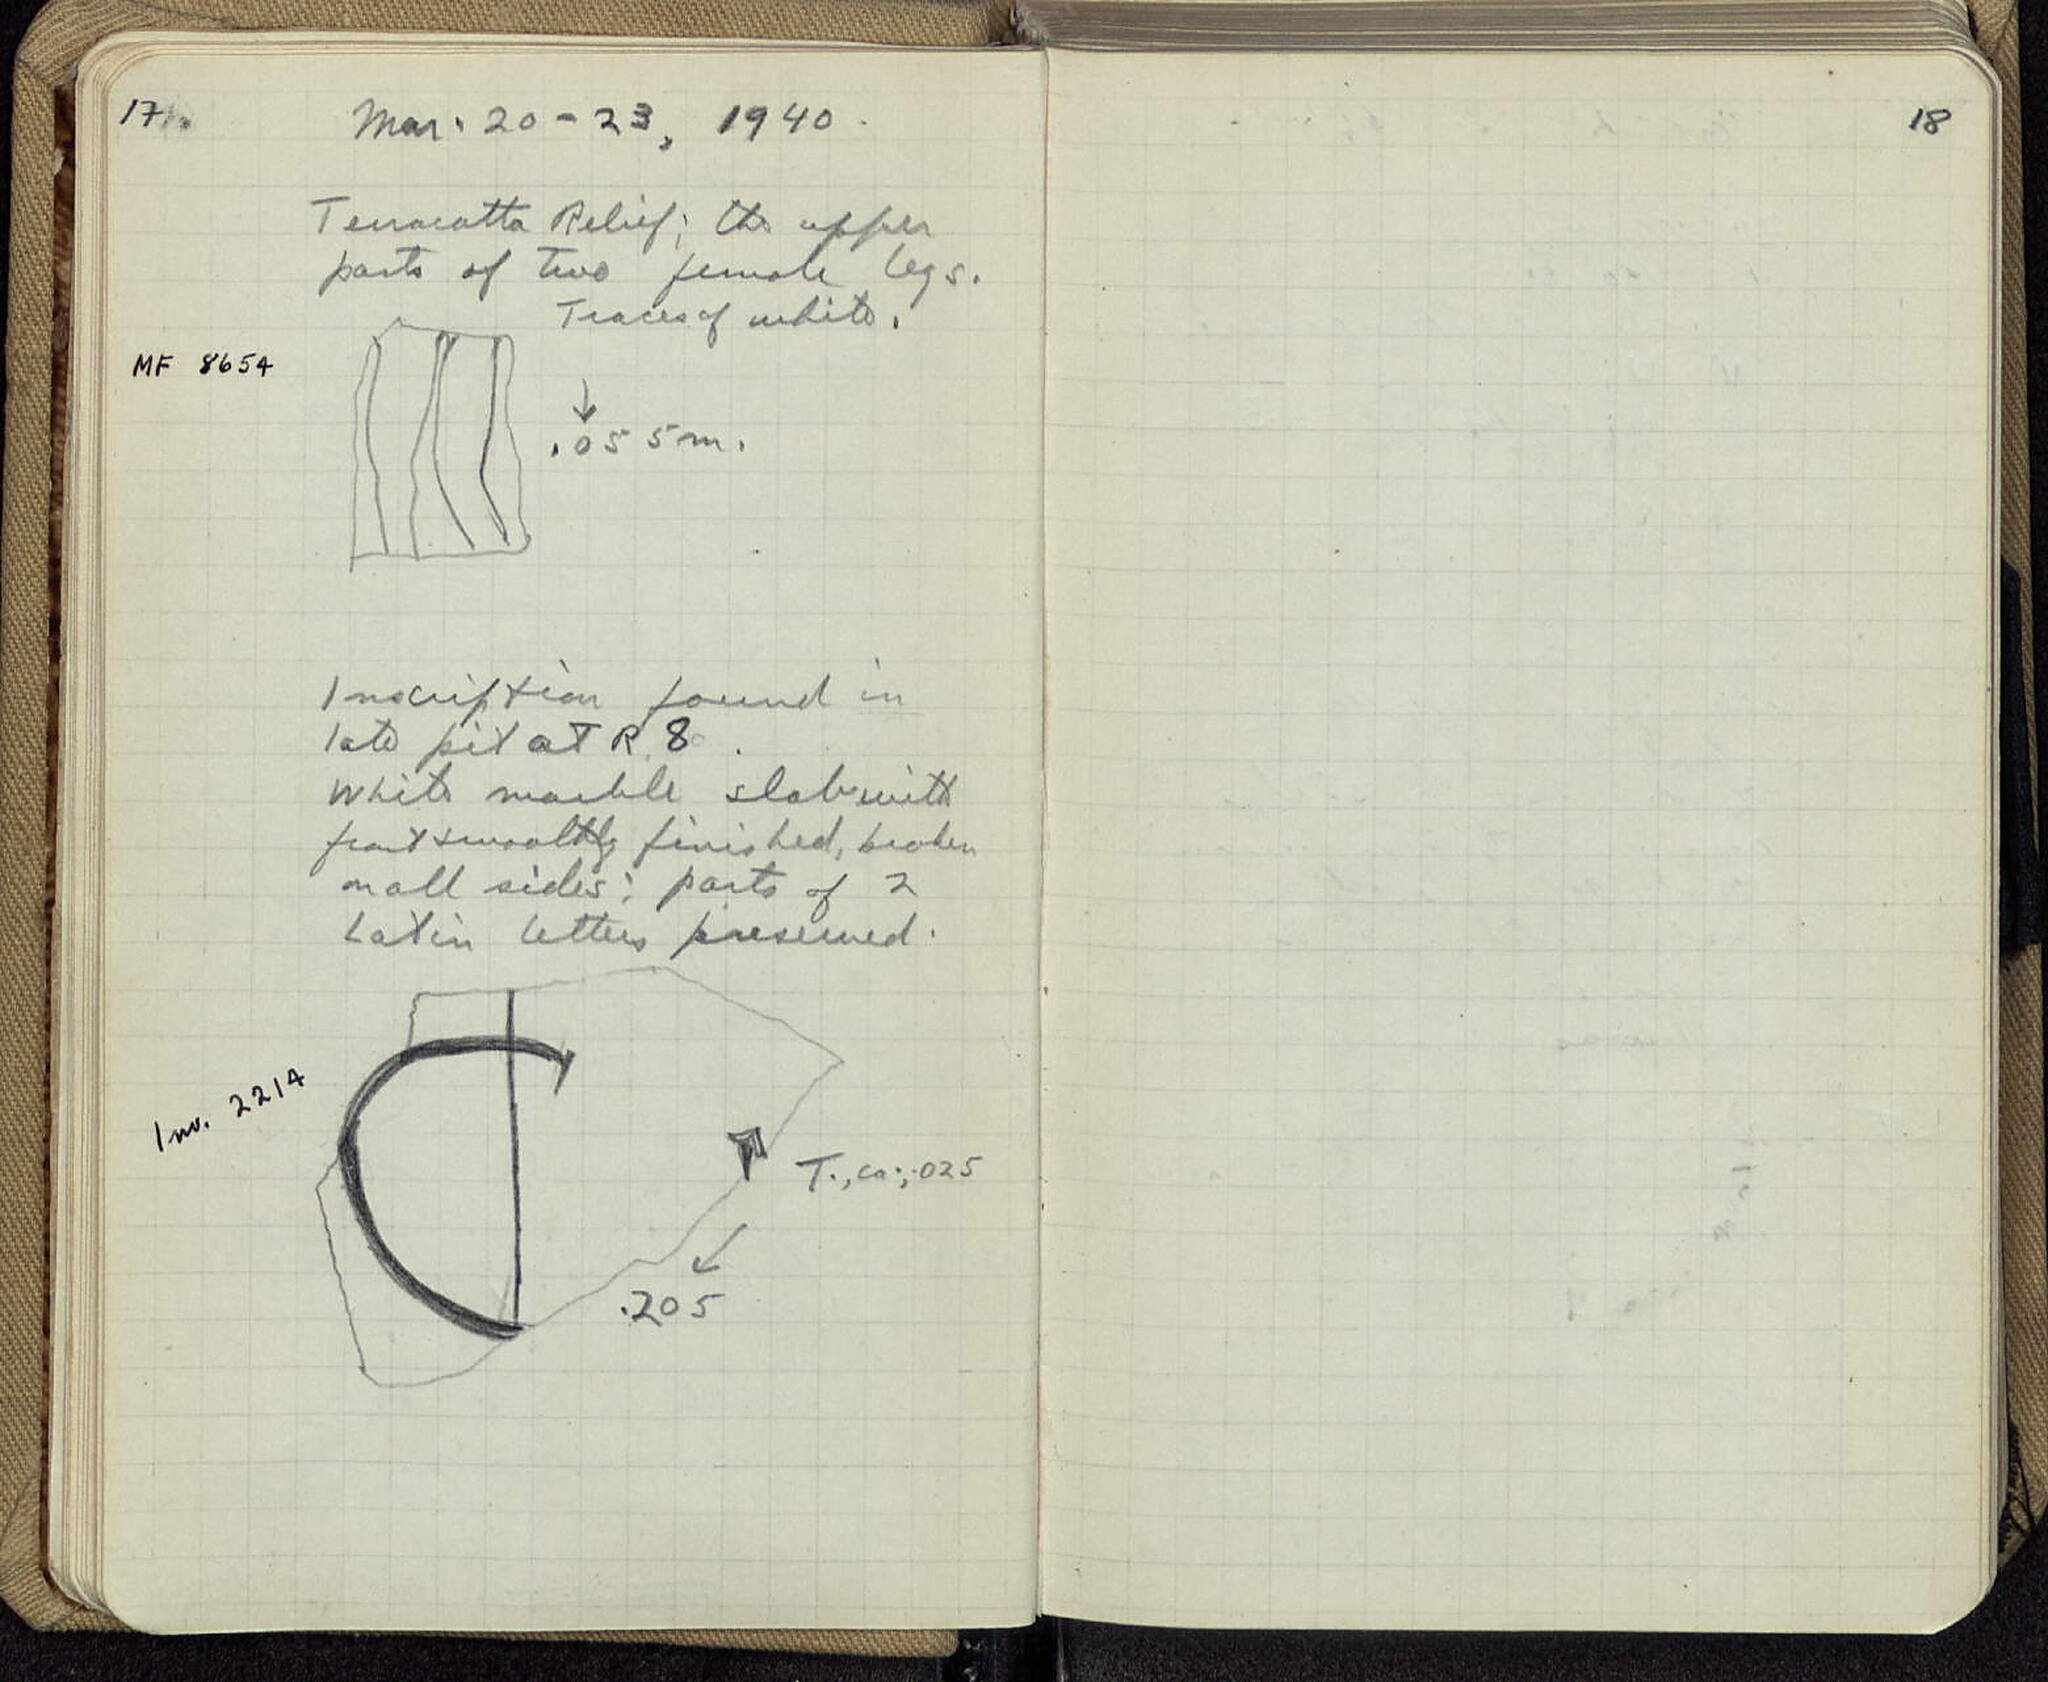 17.
Mar. 20-23, 1940.
Terracotta Relief; the upper
parts of two female legs.
Traces of white.
MF 8654
.055m.
Inscription found in
late pit at R 8.
White marble slab with
front smoothly finished, broken
on all sides; parts of 2
Latin letters preserved.
Inv. 2214
T., ca., .025
.205
18